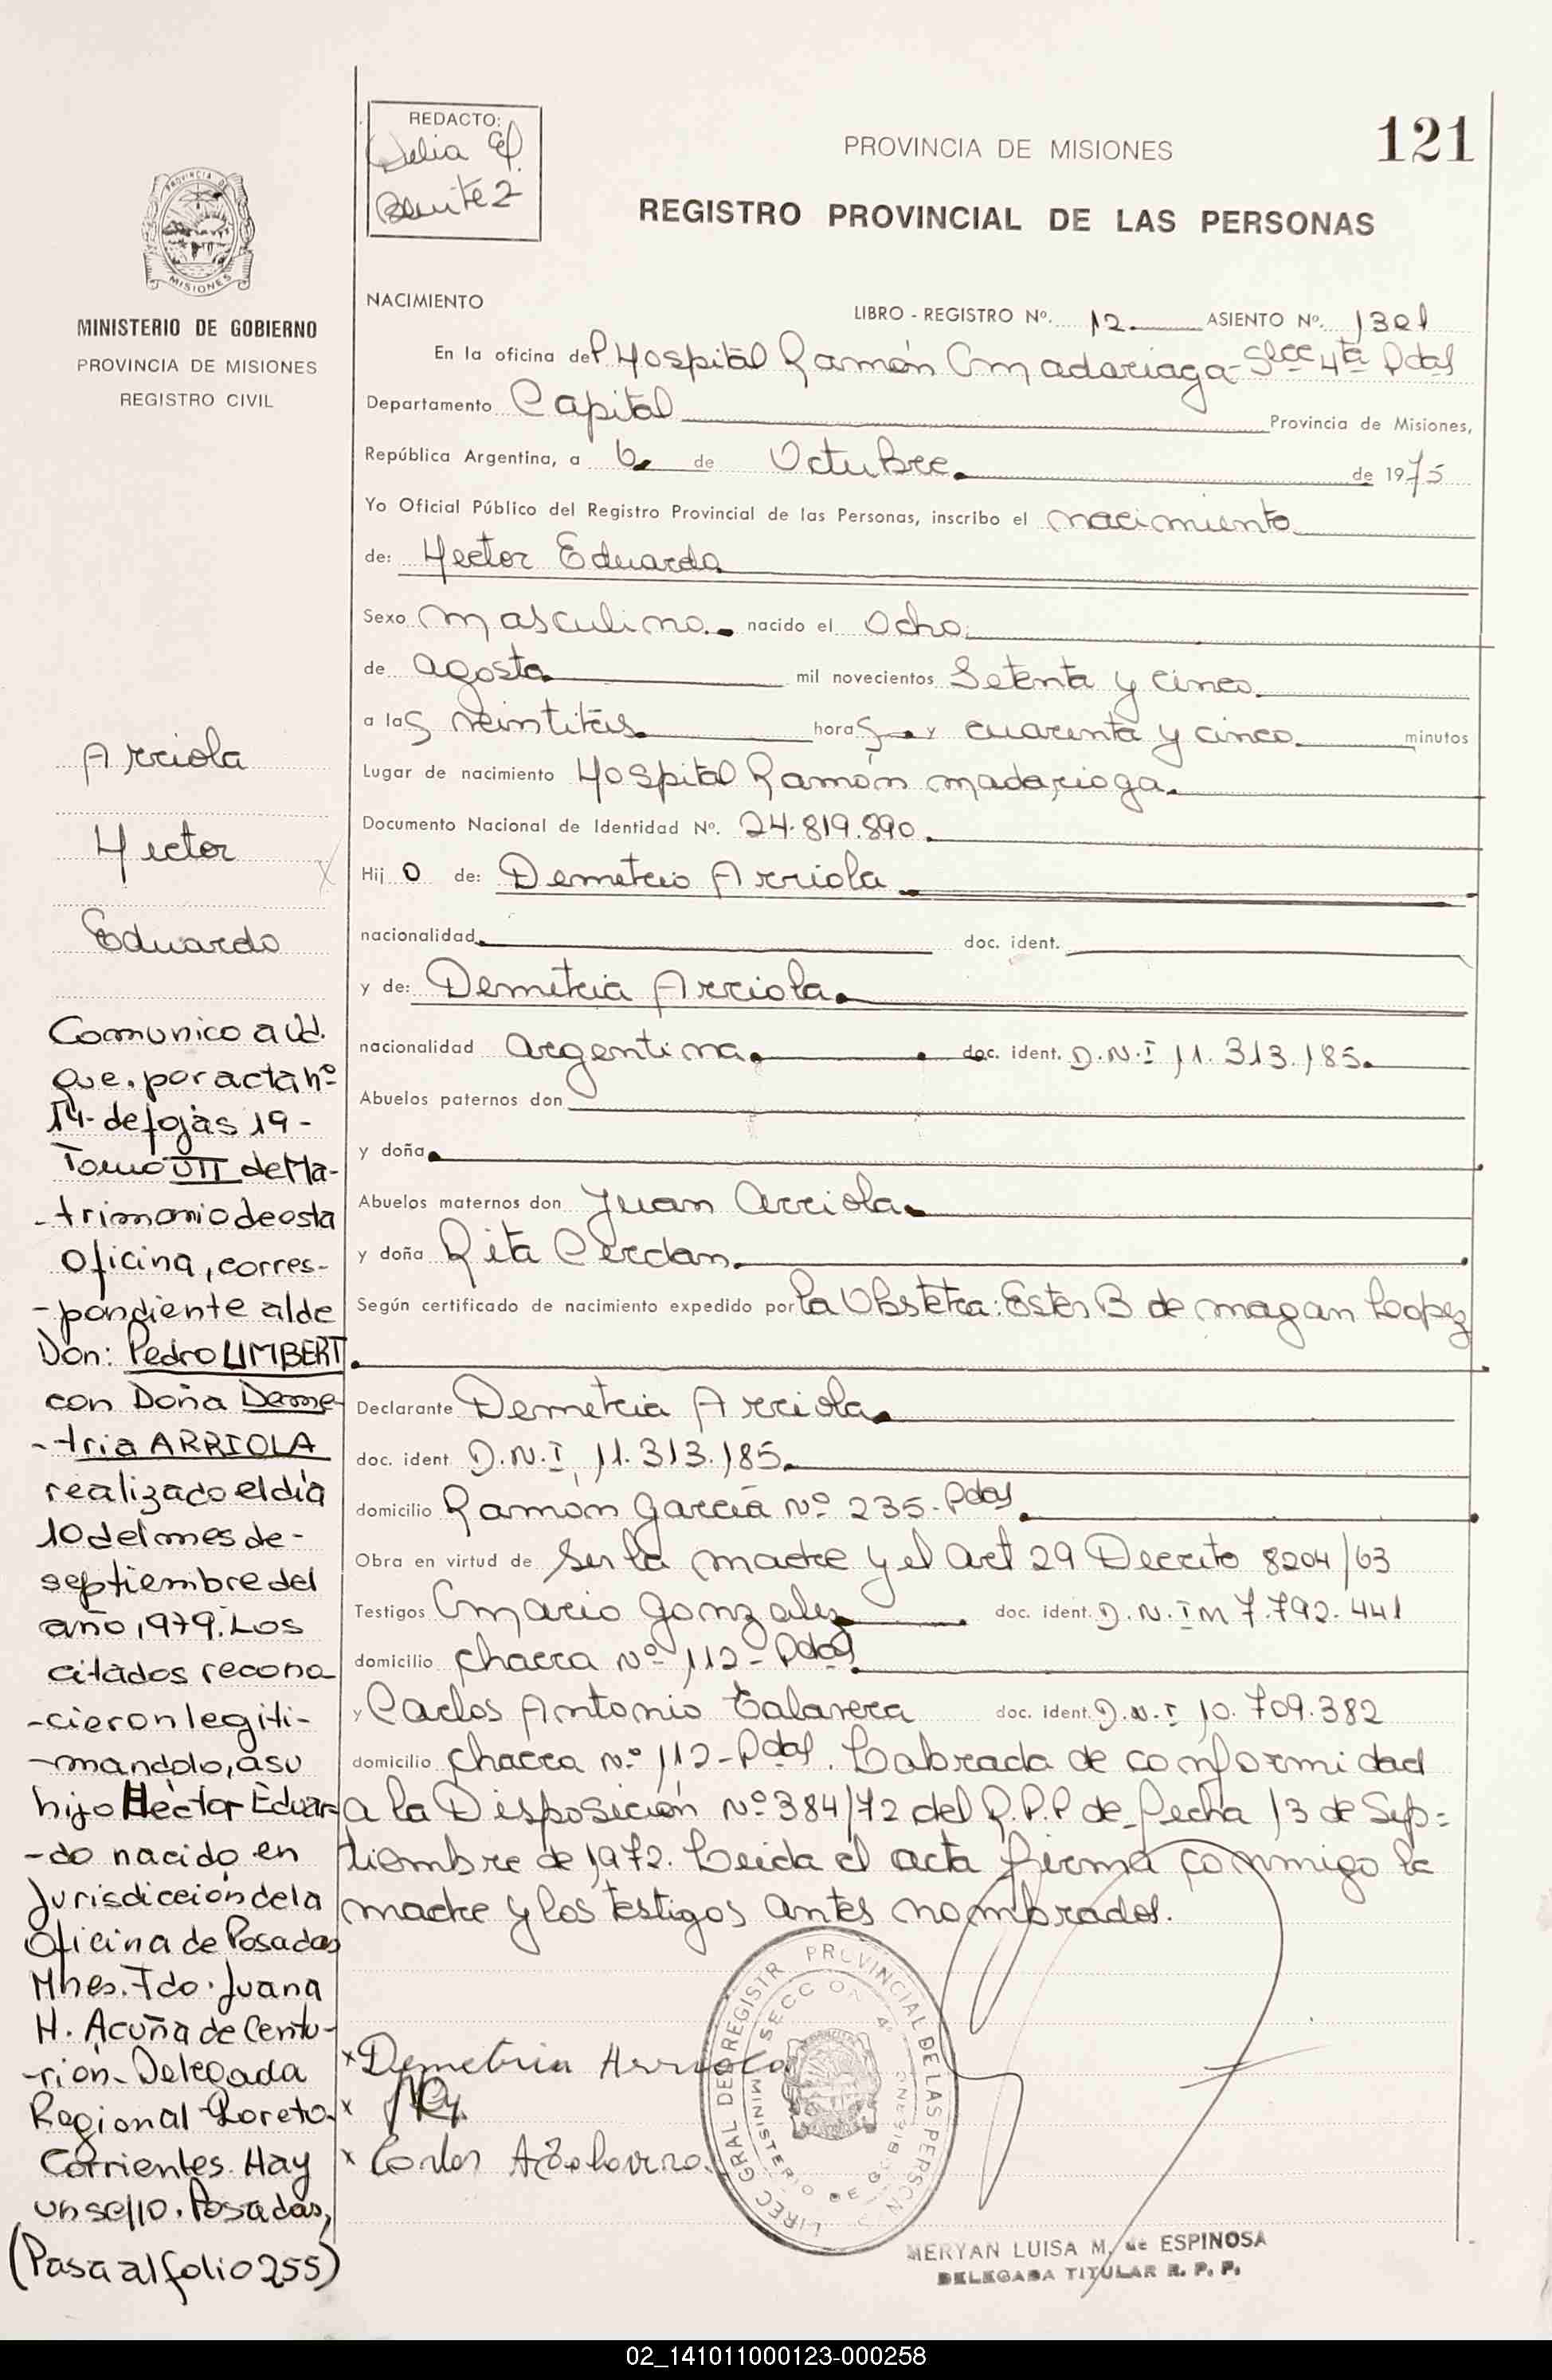 REDACTO:
Delia E.
Benitez
PROVINCIA DE MISIONES
121
REGISTRO PROVINCIAL DE LAS PERSONAS
PROVINCIA DE
MISIONES
MINISTERIO DE GOBIERNO
PROVINCIA DE MISIONES
REGISTRO CIVIL
NACIMIENTO
LIBRO - REGISTRO Nº. 12 ASIENTO Nº. 1301
En la oficina del Hospital Ramón Madariaga- Secc 4ta Pdas
Departamento Capital Provincia de Misiones,
República Argentina, a 6 de Octubre. de 1975
Yo Oficial Público del Registro Provincial de las Personas, inscribo el nacimiento
de: Hector Eduardo
Sexo masculino. nacido el Ocho
de agosto mil novecientos Setenta y cinco
a las veintitres horas y cuarenta y cinco minutos
Lugar de nacimiento Hospital Ramón madariaga.
Documento Nacional de Identidad Nº. 24.819.890.
Hijo de: Demetrio Arriola
nacionalidad doc. ident.
y de: Demetria Arriola
nacionalidad argentina doc. ident. D.N.I 11.313.185.
Abuelos paternos don
y doña
Abuelos maternos don Juan Arriola
y doña Rita Cerdan
Según certificado de nacimiento expedido por la Obstetra: Ester B de magan Loopez
Declarante Demetria Arriola
doc. ident D.N.I, 11.313.185.
domicilio Ramón García Nº 235- Pdas
Obra en virtud de ser la madre y el art 29 Decreto 8204/63
Testigos Mario Gonzalez doc. ident. D.N.I M 7.792.441
domicilio chacra Nº 112- Pdas
y Carlos Antonio Talavera doc. ident. D.N.I 10.709.382
domicilio chacra Nº 112-Pdas. Labrada de conformidad
a la Disposición Nº 384/72 del R.P.P de fecha 13 de Sep=
tiembre de 1972. Leida el acta firma conmigo la
madre y los testigos antes nombrados.
Demetria Arriola
Carlos A Talavera
DIREC GRAL DEL REGISTR PROVINCIAL DE LAS PERSON
SECCION 4ª
MINISTERIO DE GOBIERNO
MERYAN LUISA M. de ESPINOSA
DELEGADA TITULAR R. P. P.
Arriola
Hector
Eduardo
Comunico a Ud.
que. por acta nº
14- de fojas 19-
Tomo UTI de Ma-
-trimonio de esta
Oficina, corres-
-pondiente al de
Don: Pedro LIMBERT
con Doña Deme-
-tria ARRIOLA
realizado el día
10 del mes de-
septiembre del
año 1979. Los
citados recono
-cieron legiti-
-mandolo, a su
hijo Héctor Eduar-
-do nacido en
Jurisdicción de la
Oficina de Posadas
Mnes. Fdo. Juana
H. Acuña de Centu-
-rión- Delegada
Regional Loreto.
Corrientes. Hay
un sello. Posadas,
(Pasa al folio 255)
02_141011000123-000258